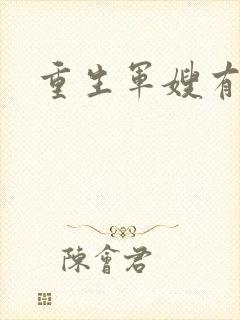 重生軍嫂有
陳會君